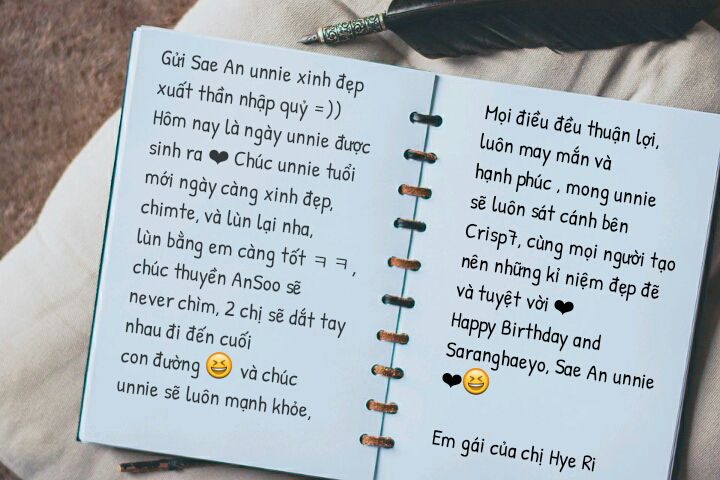 Gửi Sae An unnie xinh đẹp
xuất thần nhập quỷ =))
Hôm nay là ngày unnie được
sinh ra ❤ Chúc unnie tuổi
mới ngày càng xinh đẹp,
chimte, và lùn lại nha,
lùn bằng em càng tốt ㅋㅋ,
chúc thuyền AnSoo sẽ
never chìm, 2 chị sẽ dắt tay
nhau đi đến cuối
con đường 😆 và chúc
unnie sẽ luôn mạnh khỏe,
Mọi điều đều thuận lợi,
luôn may mắn và
hạnh phúc , mong unnie
sẽ luôn sát cánh bên
Crisp7, cùng mọi người tạo
nên những kỉ niệm đẹp đẽ
và tuyệt vời ❤
Happy Birthday and
Saranghaeyo, Sae An unnie
❤😆
Em gái của chị Hye Ri